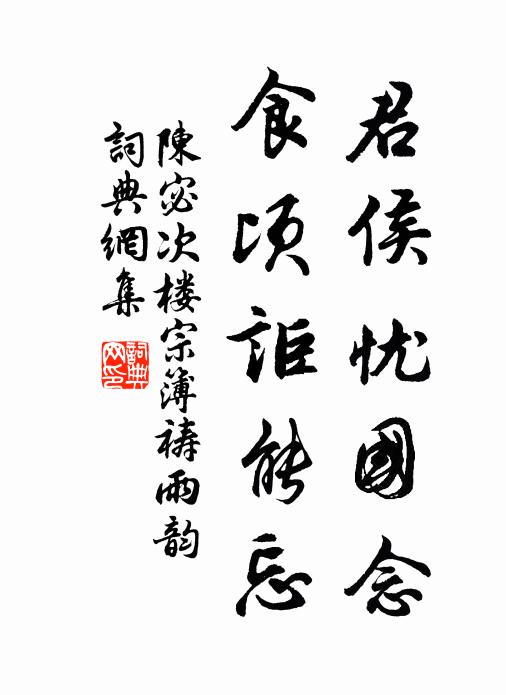 君侯忧國念
食顷詎能忘
陳宓次楼宗簿祷雨韵
詞典網集
詞典网印